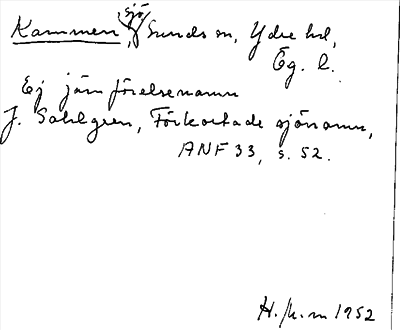 Kammen, sjö, Sunds sn, Ydre hd,
Ög. l.
Ej jämförelsenamn
J. Sahlgren, Förkortade sjönamn,
ANF 33, s. 52.
1952